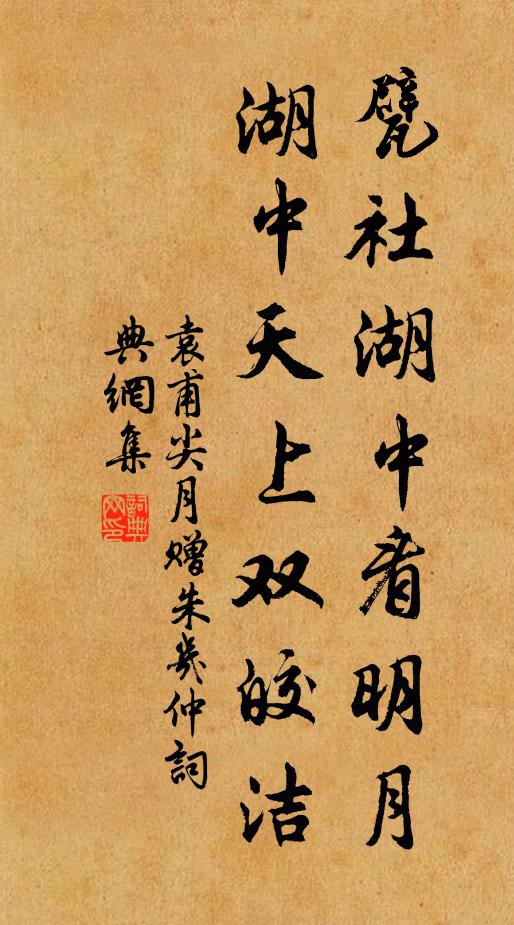 甓社湖中看明月
湖中天上双皎洁
袁甫尖月赠朱幾仲詞
典網集
詞典
网印